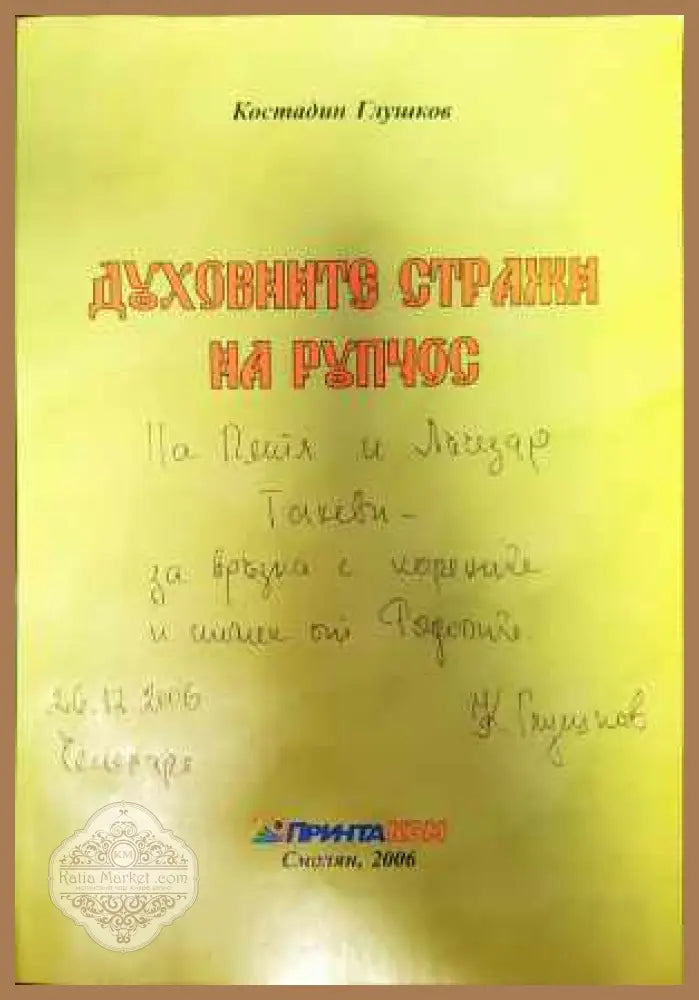 Костадин Глушков
ДУХОВНИТЕ СТРАЖИ
НА РУПЧОС
На Петя и Лъчезар
Такеви –
за връзка с корените
и от Родопите.
26.12.2006
Чепеларе
К. Глушков
ПРИНТА КОМ
Смолян, 2006
KM
Katia Market .com